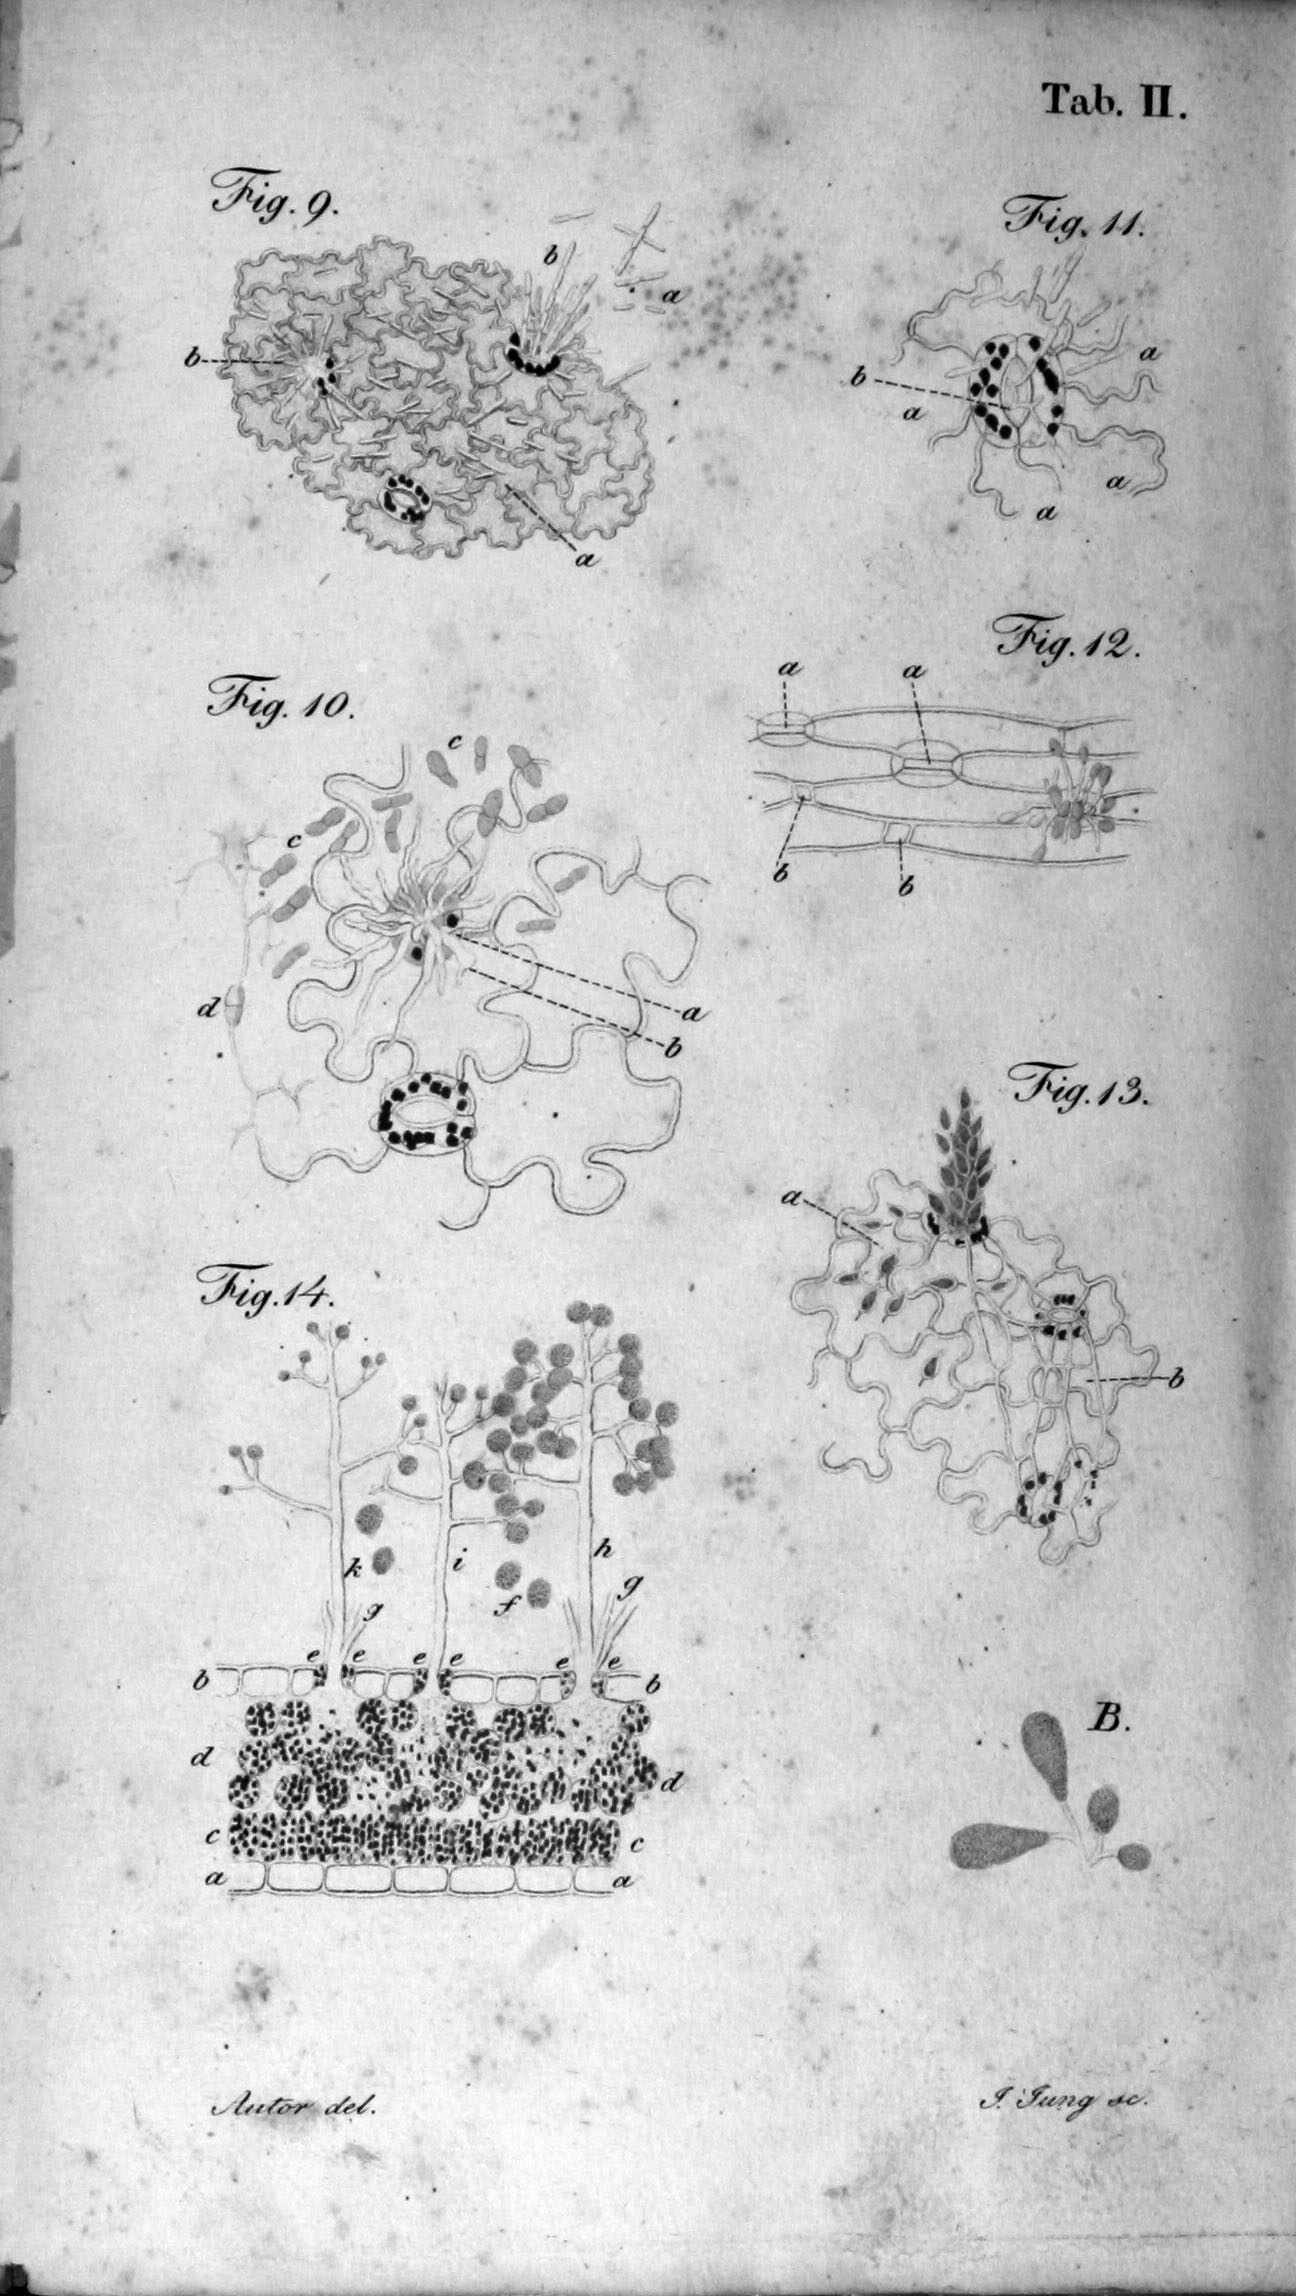 Tab. II.
Fig. 9.
b
a
b
a
Fig. 11.
a
b
a
a
a
Fig. 10.
c
c
d
a
b
Fig. 12.
a a
b
b
Fig. 13.
a
b
Fig. 14.
k i h
f g
g
e e e e e e
b b
d
d
c c
a a
B.
Autor del.
J. Jung sc.